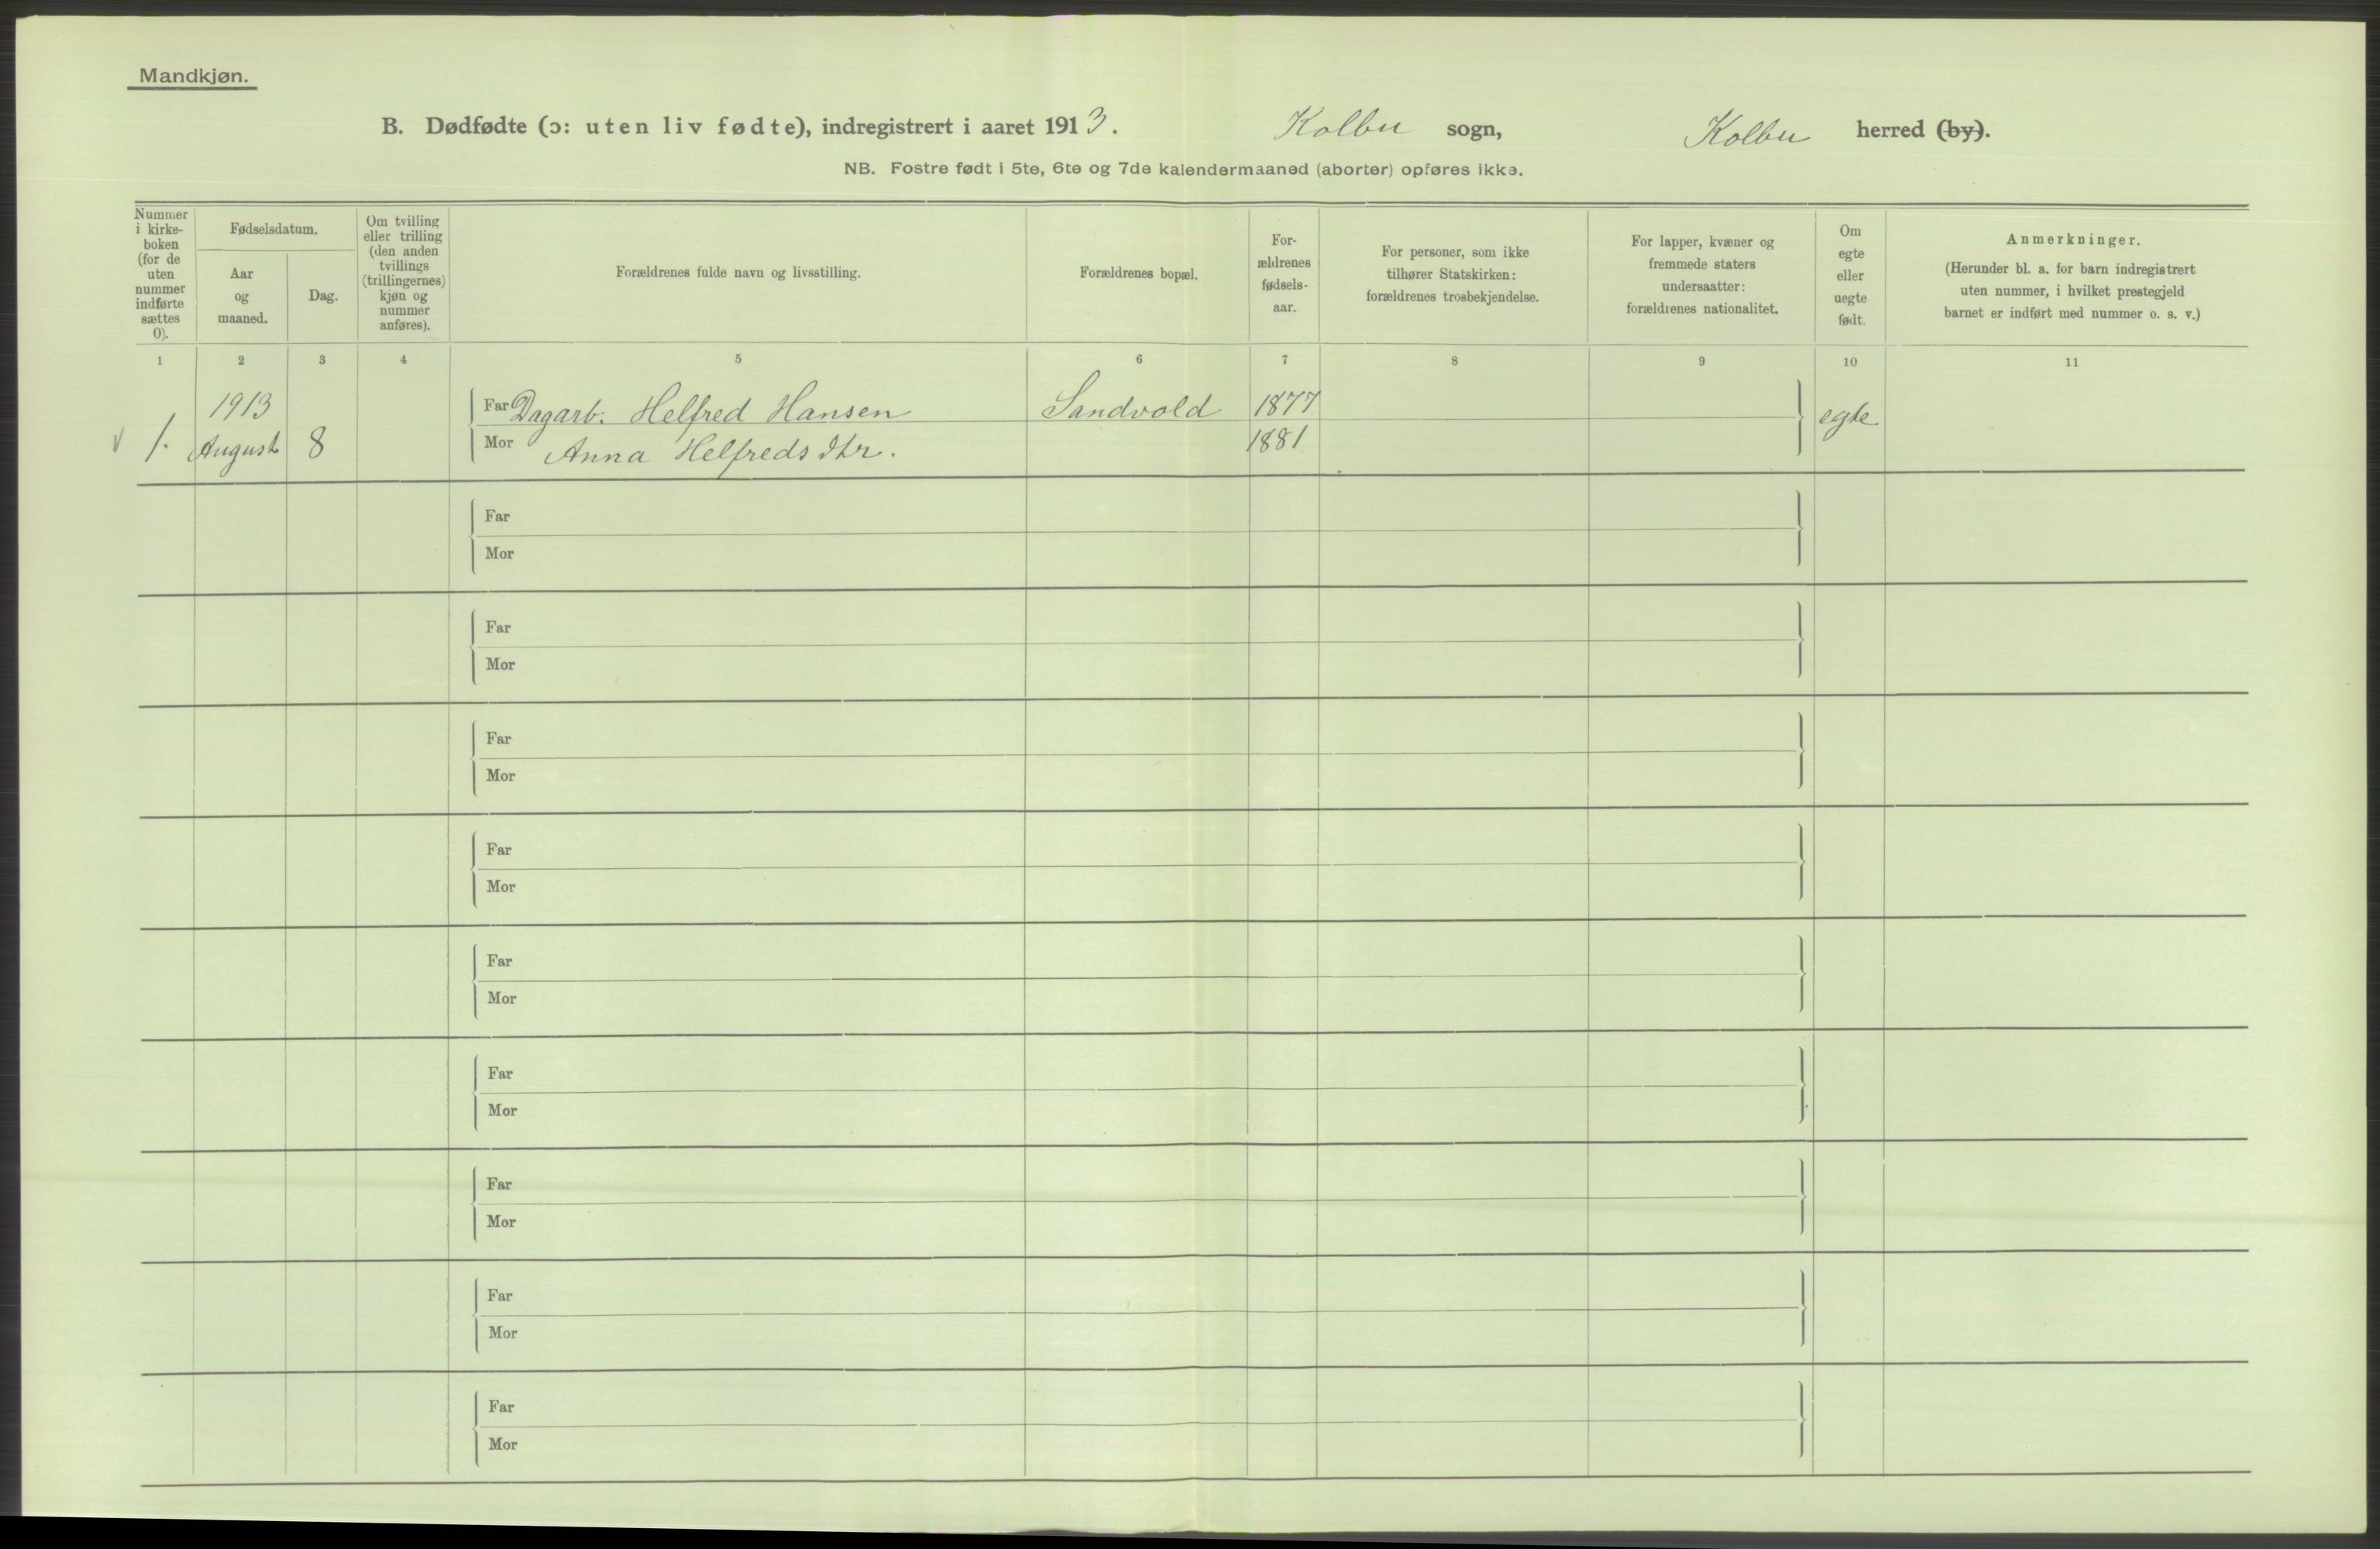 Mandkjøn.
B. Dødfødte (ɔ: uten liv fødte), indregistrert i aaret 1913. Kolbu sogn, Kolbu herred (by).
NB. Fostre født i 5te, 6te og 7de kalendermaaned (aborter) opføres ikke.
Nummer
i kirke-
boken
(for de
uten
nummer
indførte
sættes
0).
Fødselsdatum.
Aar
og
maaned.
Dag.
Om tvilling
eller trilling
(den anden
tvillings
(trillingernes)
kjøn og
nummer
anføres).
Forældrenes fulde navn og livsstilling.
Forældrenes bopæl.
For-
ældrenes
fødsels-
aar.
For personer, som ikke
tilhører Statskirken:
forældrenes trosbekjendelse.
For lapper, kvæner og
fremmede staters
undersaatter:
forældrenes nationalitet.
Om
egte
eller
uegte
født.
Anmerkninger.
(Herunder bl. a. for barn indregistrert
uten nummer, i hvilket prestegjeld
barnet er indført med nummer o. s. v.)
1 2 3 4 5 6 7 8 9 10 11
1913 Far Dagarb. Helfred Hansen Sandvold 1877 egte
1. August 8 Mor Anna Helfreds dtr. 1881
Far
Mor
Far
Mor
Far
Mor
Far
Mor
Far
Mor
Far
Mor
Far
Mor
Far
Mor
Far
Mor